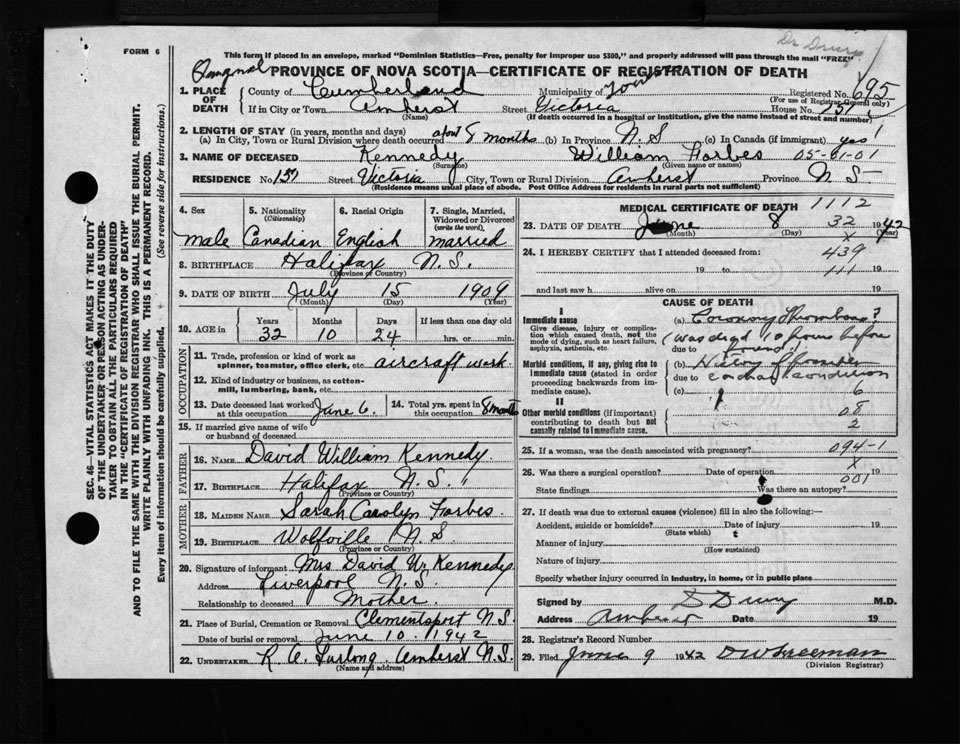 Dr Drury
FORM 6
This form if placed in an envelope, marked "Dominion Statistics—Free, penalty for improper use $300," and properly addressed will pass through the mail "FREE"
PROVINCE OF NOVA SCOTIA—CERTIFICATE OF REGISTRATION OF DEATH
1. PLACE OF DEATH County of Cumberland Municipality of Town Registered No. 695
(For use of Registrar General only)
If in City or Town Amherst Street Victoria House No. 157
(Name) (If death occurred in a hospital or institution, give the name instead of street and number)
2. LENGTH OF STAY (in years, months and days)
(a) In City, Town or Rural Division where death occurred about 8 months (b) In Province N.S (c) In Canada (if immigrant) yes
3. NAME OF DECEASED Kennedy William Forbes 05-61-01
(Surname) (Given name or names)
RESIDENCE No. 157 Street Victoria City, Town or Rural Division Amherst Province N S
(Residence means usual place of abode. Post Office Address for residents in rural parts not sufficient)
4. Sex 5. Nationality (Citizenship) 6. Racial Origin 7. Single, Married, Widowed or Divorced (write the word)
male Canadian English married
8. BIRTHPLACE Halifax N.S.
(Province or Country)
9. DATE OF BIRTH July 15 1909
(Month) (Day) (Year)
10. AGE in Years Months Days If less than one day old
32 10 24 hrs. or min.
OCCUPATION
11. Trade, profession or kind of work as spinner, teamster, office clerk, etc. aircraft work.
12. Kind of industry or business, as cotton-mill, lumbering, bank, etc.
13. Date deceased last worked at this occupation June 6. 14. Total yrs. spent in this occupation 8 months
15. If married give name of wife or husband of deceased
FATHER
16. NAME David William Kennedy.
17. BIRTHPLACE Halifax N.S.
(Province or Country)
MOTHER
18. MAIDEN NAME Sarah Carolyn Forbes.
19. BIRTHPLACE Wolfville N S.
(Province or Country)
20. Signature of informant Mrs David W. Kennedy
Address Liverpool N.S.
Relationship to deceased Mother.
21. Place of Burial, Cremation or Removal Clementsport N.S.
Date of burial or removal June 10. 1942
22. UNDERTAKER R. A. Furlong. Amherst N.S.
(Name and address)
MEDICAL CERTIFICATE OF DEATH 1112
23. DATE OF DEATH June 8 32 1942
(Month) (Day) (Year)
24. I HEREBY CERTIFY that I attended deceased from: x 439
19 to 111 19
and last saw h alive on 19
CAUSE OF DEATH
I
Immediate cause (a) Coronary Thrombosis?
Give disease, injury or complication which caused death, not the mode of dying, such as heart failure, asphyxia, asthenia, etc.
(was dead 10 hours before
due to found)
Morbid conditions, if any, giving rise to immediate cause (stated in order proceeding backwards from immediate cause). (b) History of
due to condition
(c) 6
II
Other morbid conditions (if important) contributing to death but not causally related to immediate cause. 08
2
25. If a woman, was the death associated with pregnancy? 094-1
26. Was there a surgical operation? Date of operation x 19
State findings Was there an autopsy? 001
27. If death was due to external causes (violence) fill in also the following:—
Accident, suicide or homicide? Date of injury 19
(State which)
Manner of injury
(How sustained)
Nature of injury
Specify whether injury occurred in industry, in home, or in public place
Signed by D Drury M.D.
Address Amherst Date 19
28. Registrar's Record Number
29. Filed June 9 1942 D W Freeman
(Division Registrar)
SEC. 46—VITAL STATISTICS ACT MAKES IT THE DUTY
OF THE UNDERTAKER OR PERSON ACTING AS UNDER-
TAKER TO OBTAIN ALL THE PARTICULARS REQUIRED
IN THE "CERTIFICATE OF REGISTRATION OF DEATH"
AND TO FILE THE SAME WITH THE DIVISION REGISTRAR WHO SHALL ISSUE THE BURIAL PERMIT.
WRITE PLAINLY WITH UNFADING INK. THIS IS A PERMANENT RECORD.
Every item of information should be carefully supplied. (See reverse side for instructions.)